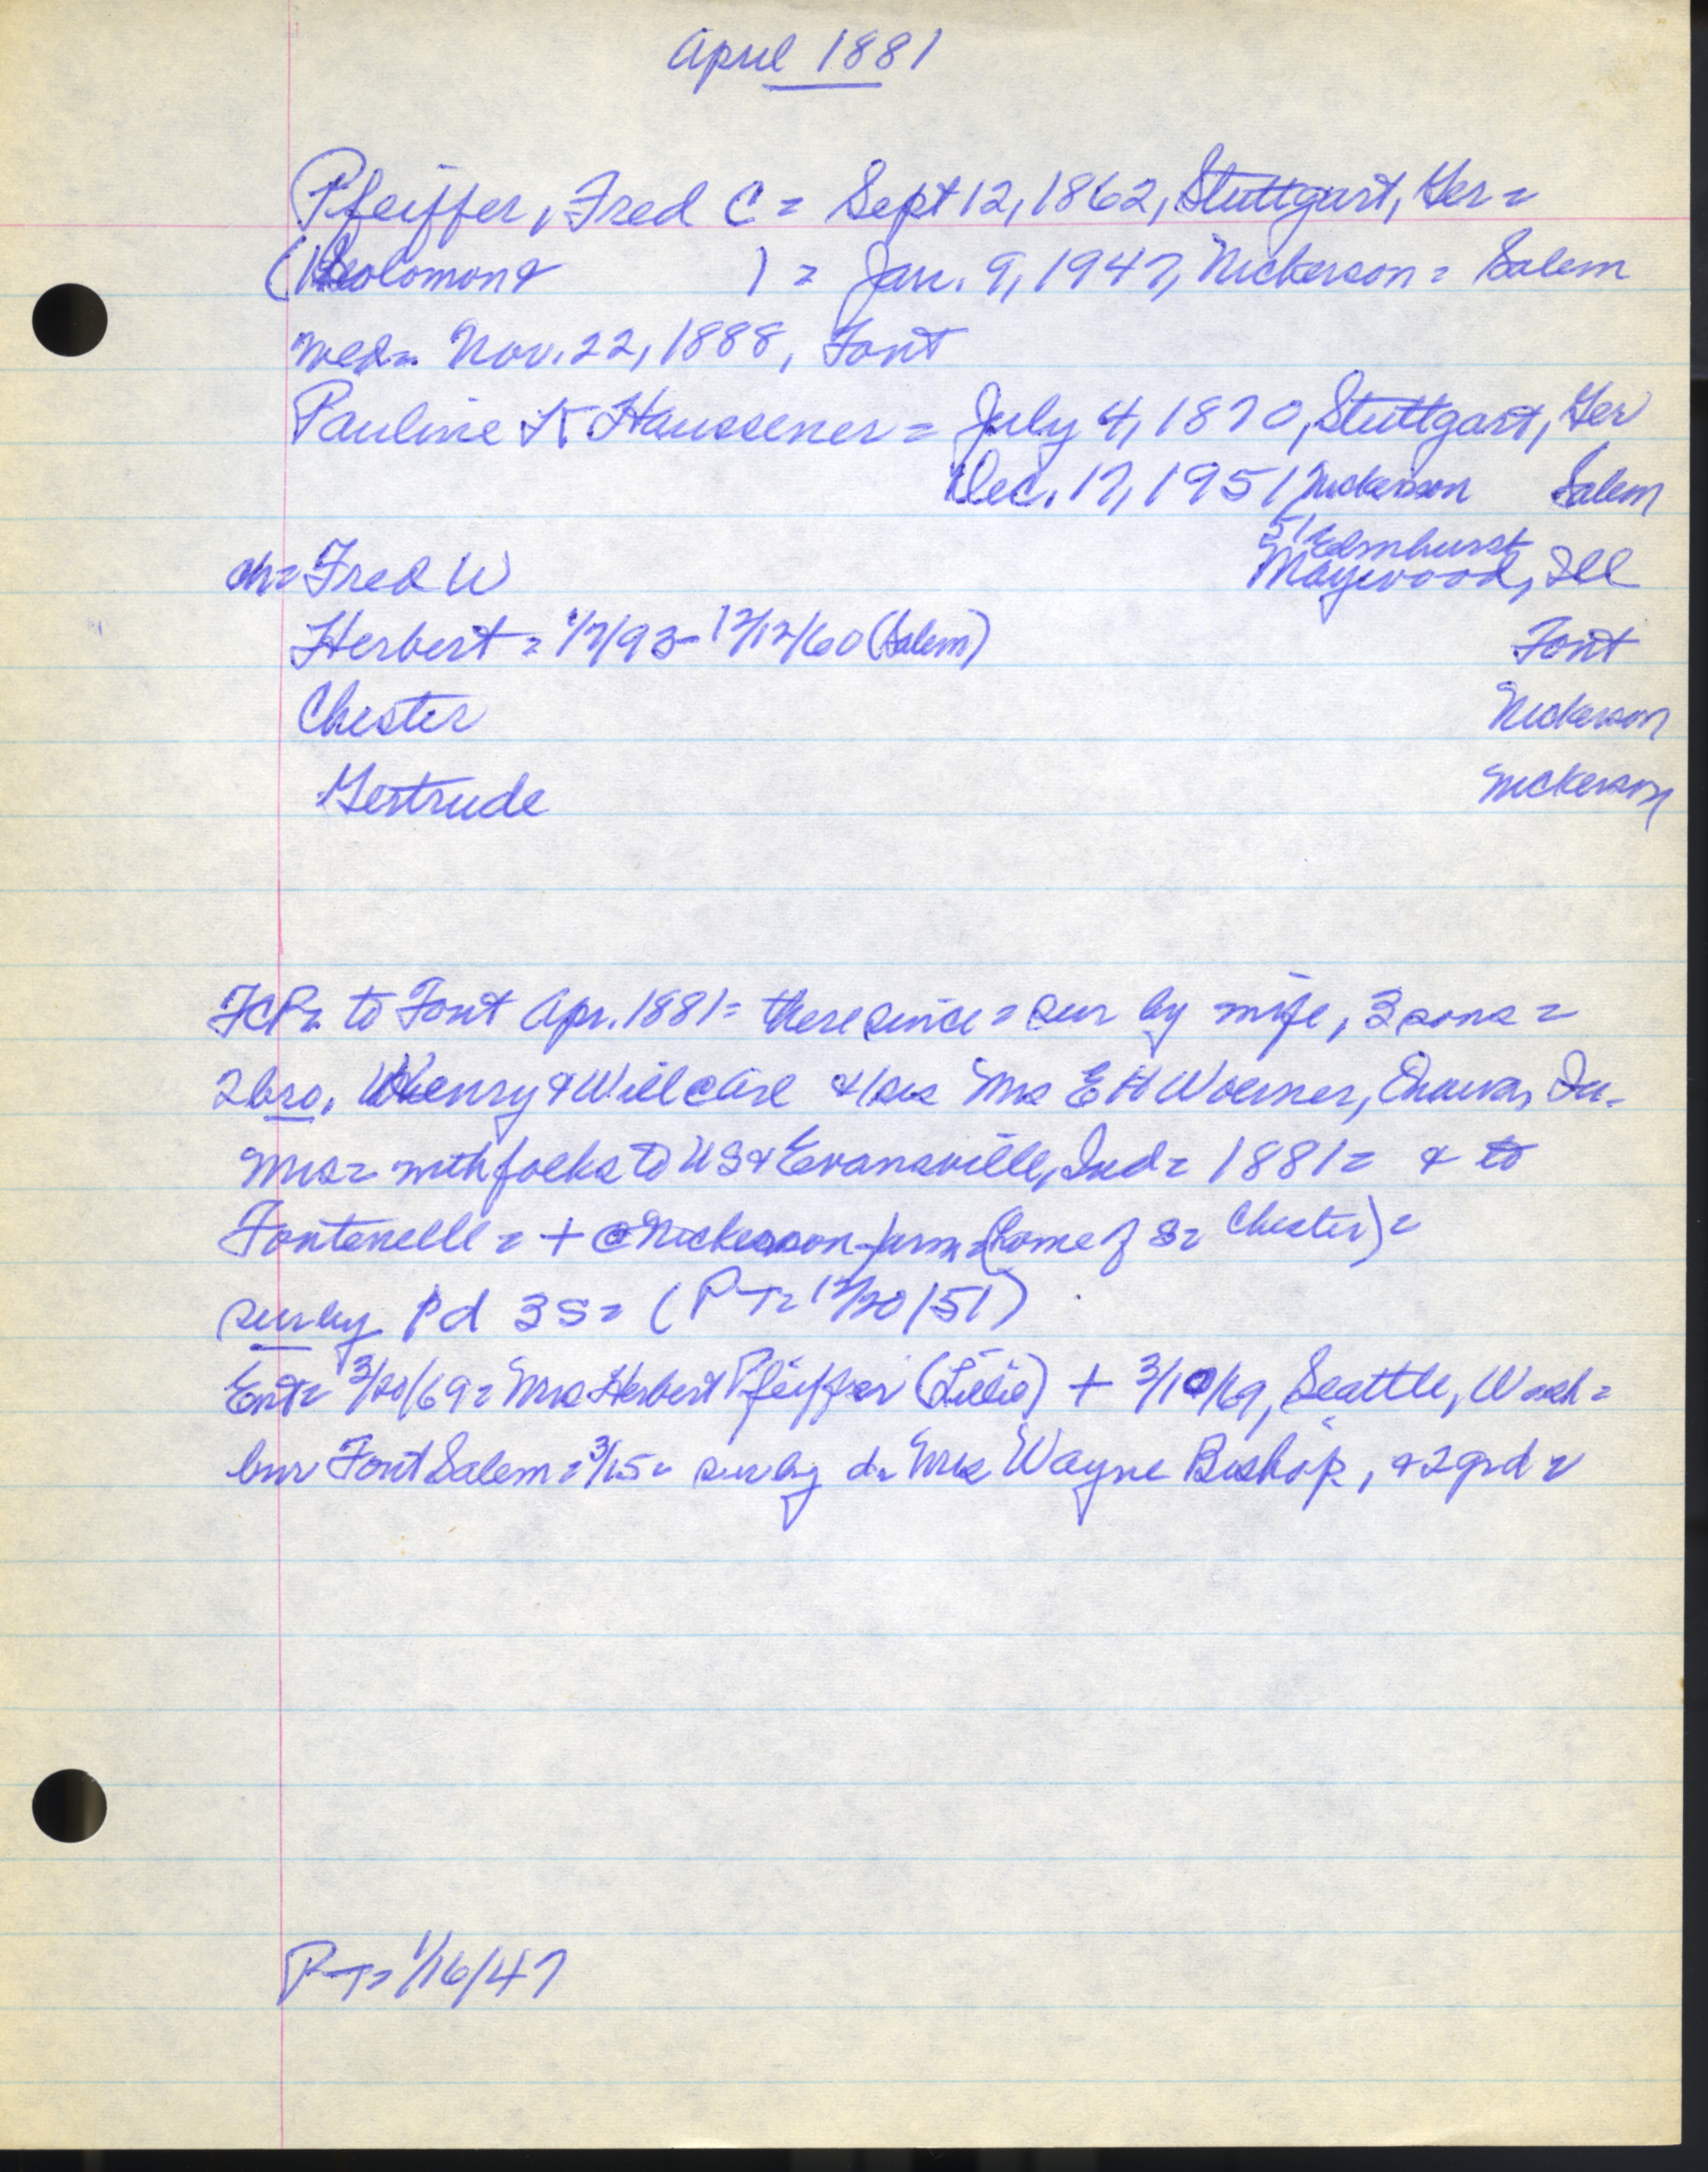 April 1881
Pfeiffer, Fred C = Sept 12, 1862, Stuttgart, Ger =
(Solomon & ) = Jan. 9, 1947, Nickerson = Salem
wed = Nov. 22, 1888, Font
Pauline K Haussener = July 4, 1870, Stuttgart, Ger
Dec. 17, 1951 Nickerson Salem
51 Elmhurst
ch = Fred W Maywood, Ill
Herbert = 1/7/93 - 12/12/60 (Salem) Font
Chester Nickerson
Gertrude Nickerson
FCP = to Font Apr. 1881 = there since = sur by wife, 3 sons =
2 bro, Henry & Will & 1 sis Mrs E H Woerner,
Mrs = with folks to US & Evansville, Ind = 1881 = & to
Fontenelle = + @ Nickerson farm = (home of s = Chester) =
sur by Pd 3 S = (P-T = 12/20/51)
Ent = 3/20/69 = Mrs Herbert Pfeiffer (Lillie) + 3/10/69, Seattle, Wash =
bur Font Salem = 3/15 = sur by d = Mrs Wayne Bishop, & 2 grd =
P-T = 1/16/47